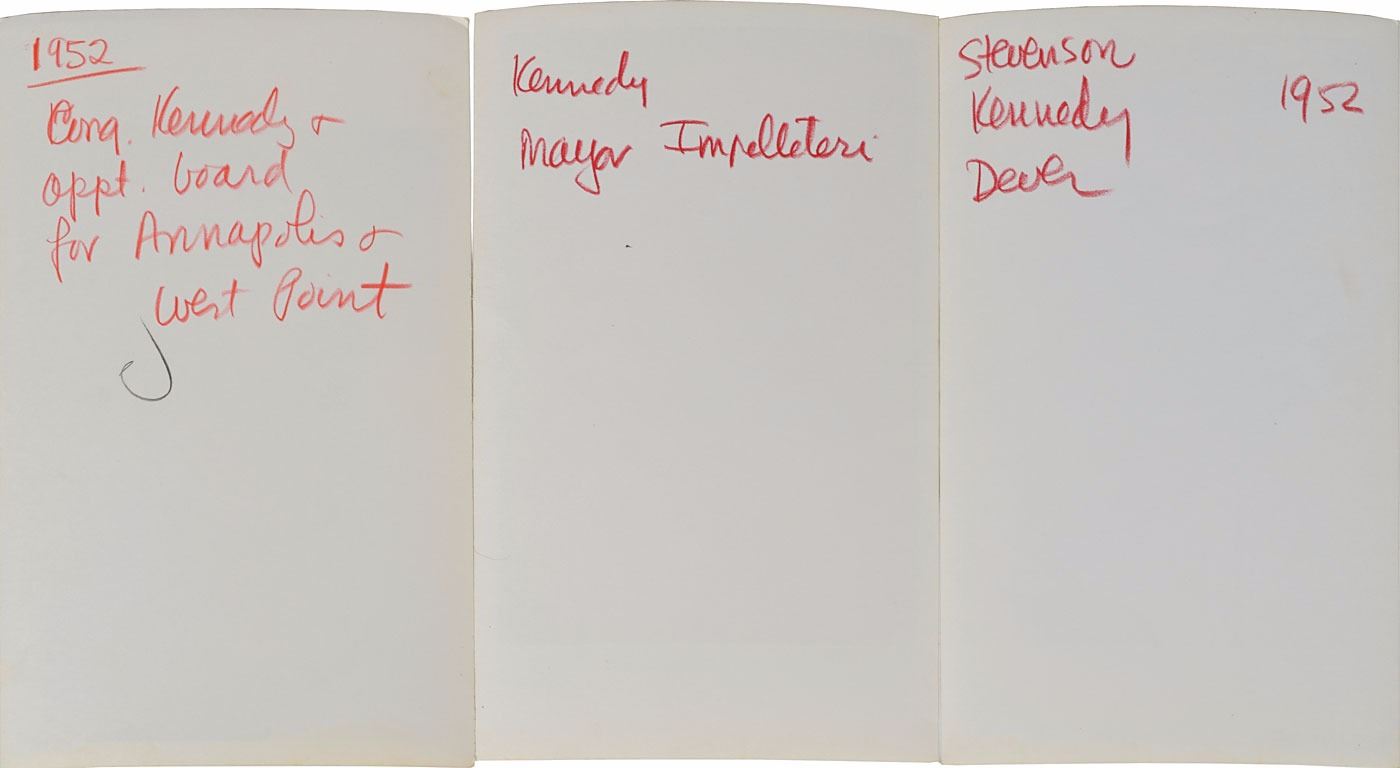 1952
Cong. Kennedy &
appt. board
for Annapolis &
West Point
Kennedy
Mayor Impelleteri
Stevenson
Kennedy 1952
Dever